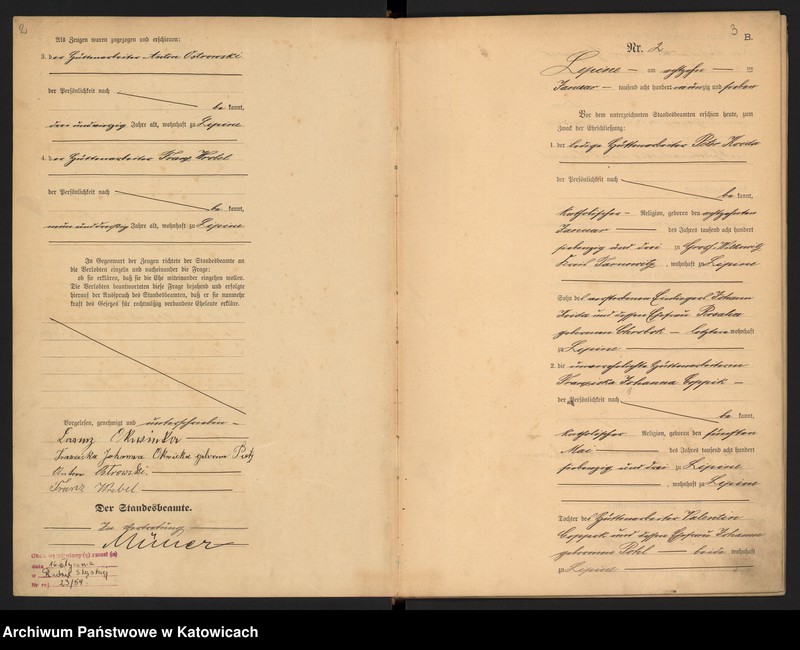 2
Als Zeugen waren zugezogen und erschienen:
3. der Hüttenarbeiter Anton Ostrowski
der Persönlichkeit nach
be kannt,
drei und vierzig Jahre alt, wohnhaft zu Lipine
4. der Hüttenarbeiter Franz Wrobel
der Persönlichkeit nach
be kannt,
neun und dreißig Jahre alt, wohnhaft zu Lipine
In Gegenwart der Zeugen richtete der Standesbeamte an
die Verlobten einzeln und nacheinander die Frage:
ob sie erklären, daß sie die Ehe miteinander eingehen wollen.
Die Verlobten beantworteten diese Frage bejahend und erfolgte
hierauf der Ausspruch des Standesbeamten, daß er sie nunmehr
kraft des Gesetzes für rechtmäßig verbundene Eheleute erkläre.
Vorgelesen, genehmigt und unterschrieben
Franziska Johanna geborene
Anton Ostrowski
Franz
Der Standesbeamte.
In Vertretung
Müller
23/54
3
B.
Nr. 2
Lipine am achtzehn ten
Januar tausend acht hundert neunzig und sieben
Vor dem unterzeichneten Standesbeamten erschien heute, zum
Zweck der Eheschließung:
1. der ledige Hüttenarbeiter Peter
der Persönlichkeit nach
be kannt,
katholischer Religion, geboren den achtzehnten
Januar des Jahres tausend acht hundert
siebenzig und drei zu Groß
Kreis Tarnowitz, wohnhaft zu Lipine
Sohn des verstorbenen Johann
und dessen Ehefrau Rosalia
geborenen letztere wohnhaft
zu Lipine
2. die unverehelichte Hüttenarbeiterin
Franziska Johanna
der Persönlichkeit nach
be kannt,
katholischer Religion, geboren den fünften
Mai des Jahres tausend acht hundert
siebenzig und drei zu Lipine
, wohnhaft zu Lipine
Tochter des Hüttenarbeiter Valentin
und dessen Ehefrau Johanna
geborenen Pohl beide wohnhaft
zu Lipine
Archiwum Państwowe w Katowicach